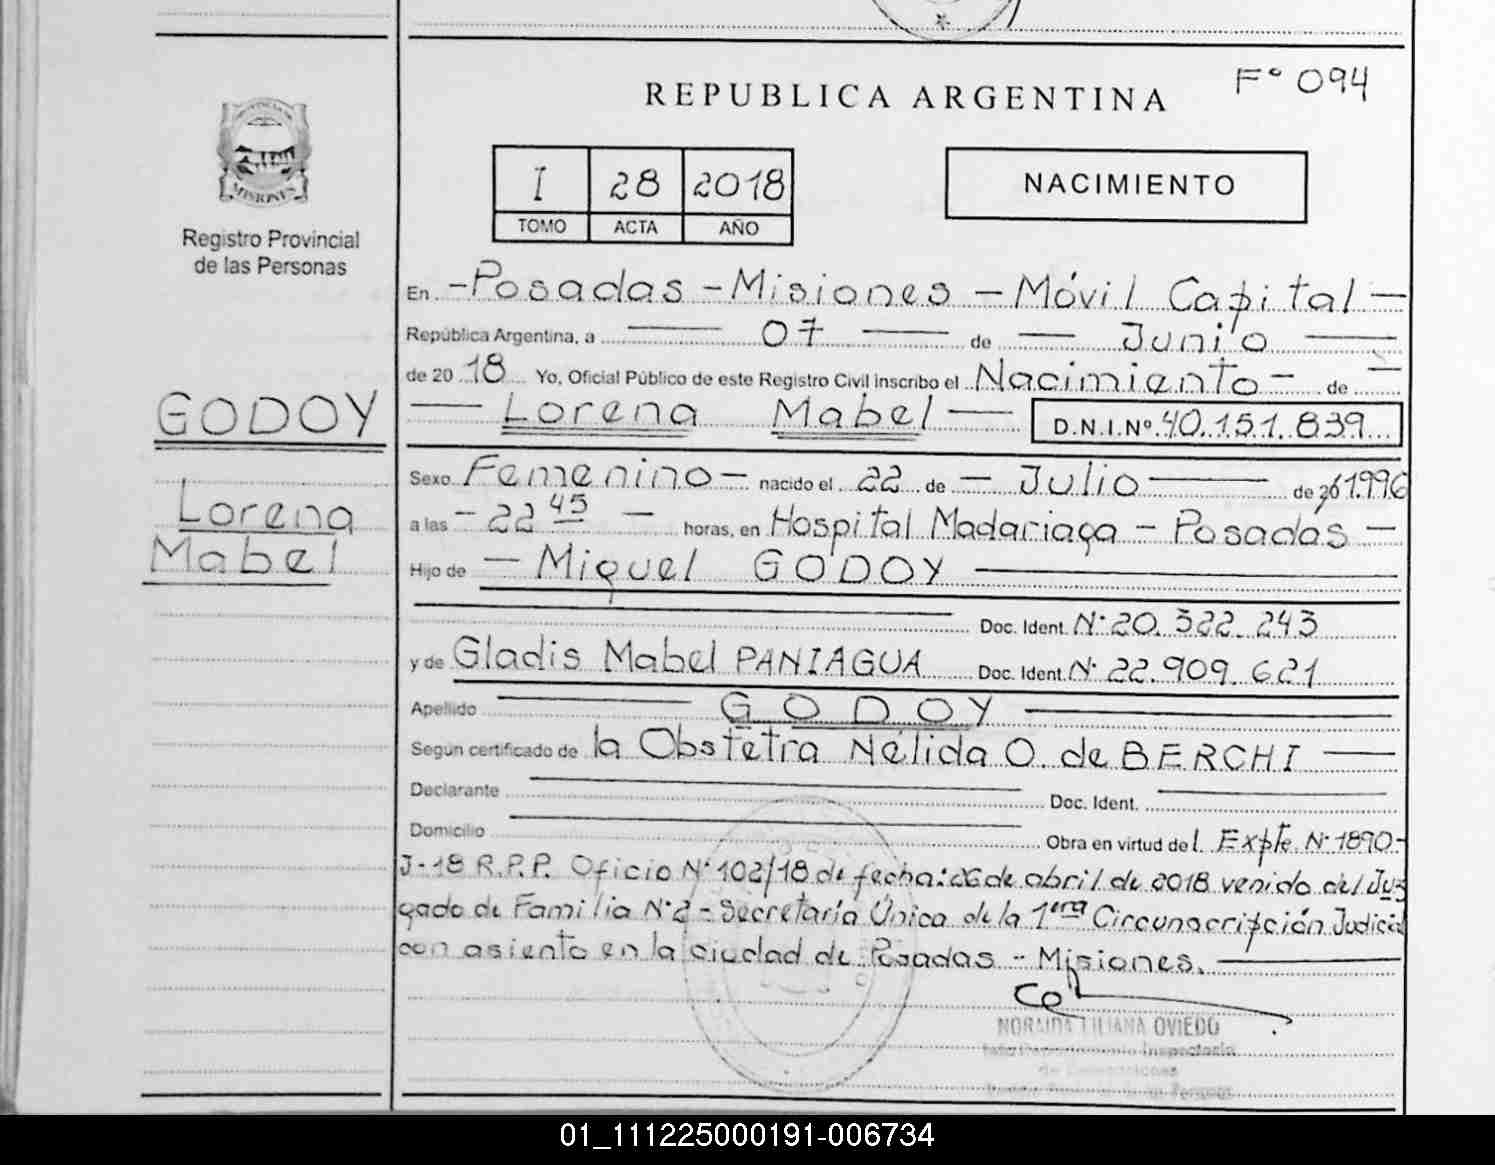 F° 094
REPUBLICA ARGENTINA
I 28 2018
TOMO ACTA AÑO
NACIMIENTO
MISIONES
Registro Provincial
de las Personas
GODOY
Lorena
Mabel
En -Posadas - Misiones - Móvil Capital -
República Argentina, a 07 de Junio
de 20 18 Yo, Oficial Público de este Registro Civil inscribo el Nacimiento - de
Lorena Mabel D.N.I.Nº 40.151.839
Sexo Femenino - nacido el 22 de - Julio de 1.996
a las - 22 45 - horas, en Hospital Madariaga - Posadas -
Hijo de - Miguel GODOY
Doc. Ident. N° 20.322.243
y de Gladis Mabel PANIAGUA Doc. Ident. N° 22.909.621
Apellido GODOY
Según certificado de la Obstetra Nélida O. de BERCHI
Declarante Doc. Ident.
Domicilio Obra en virtud del Expte. N° 1890-
J-18 R.P.P. Oficio N° 102/18 de fecha: 26 de abril de 2018 venido del Juz
gado de Familia N° 2 - Secretaría Única de la 1era Circunscripción Judicial
con asiento en la ciudad de Posadas - Misiones.
NORMINA LILIANA OVIEDO
Inspectoría
01_111225000191-006734